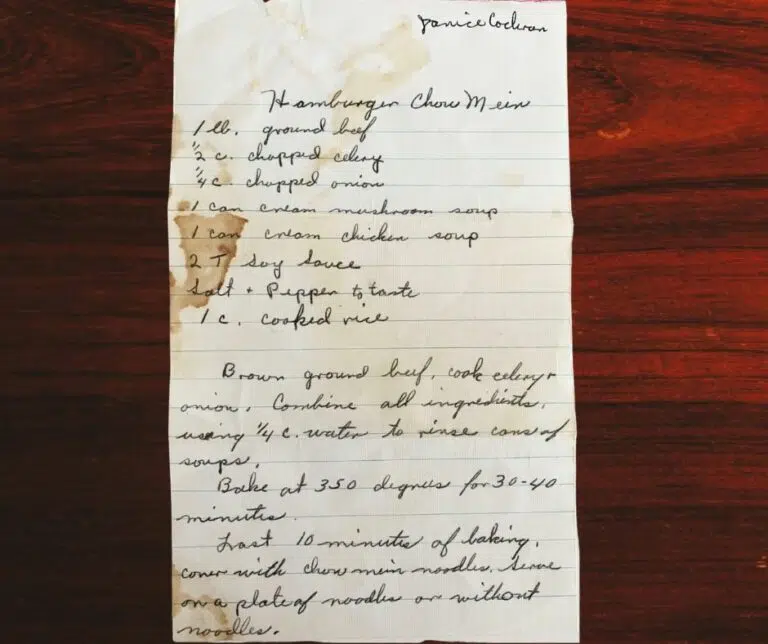 Janice Cochran
Hamburger Chow Mein
1 lb. ground beef
1/2 c. chopped celery
1/4 c. chopped onion
1 can cream mushroom soup
1 can cream chicken soup
2 T soy sauce
Salt + Pepper to taste
1 c. cooked rice
Brown ground beef, cook celery +
onion. Combine all ingredients,
using 1/4 c. water to rinse cans of
soups.
Bake at 350 degrees for 30-40
minutes.
Last 10 minutes of baking,
cover with chow mein noodles. Serve
on a plate of noodles or without
noodles.